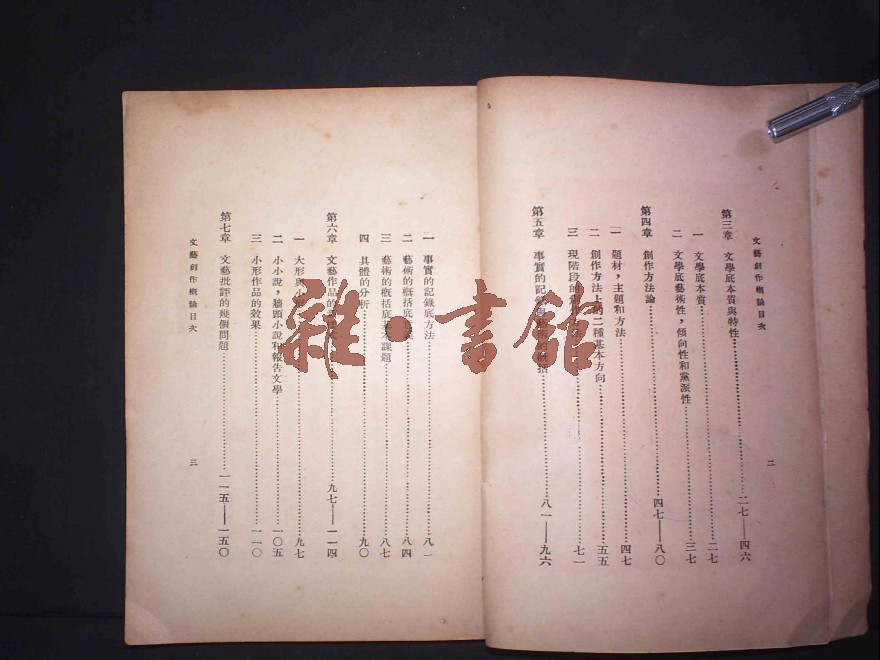 文藝創作概論目次
二
第三章 文學底本質與特性 二七——四六
一 文學底本質 二七
二 文學底藝術性，傾向性和黨派性 三七
第四章 創作方法論 四七——八〇
一 題材，主題和方法 四七
二 創作方法上的二種基本方向 五五
三 現階段的 七一
第五章 事實的記錄與藝術的概括 八一——九六
一 事實的記錄底方法 八一
二 藝術的概括底 八四
三 藝術的概括底 課題 八七
四 具體的分析 九〇
第六章 文藝作品的 九七——一一四
一 大形與小形 九七
二 小小說，牆頭小說和報告文學 一〇五
三 小形作品的效果 一一〇
第七章 文藝批評的幾個問題 一一五——一五〇
文藝創作概論目次
三
雜·書館